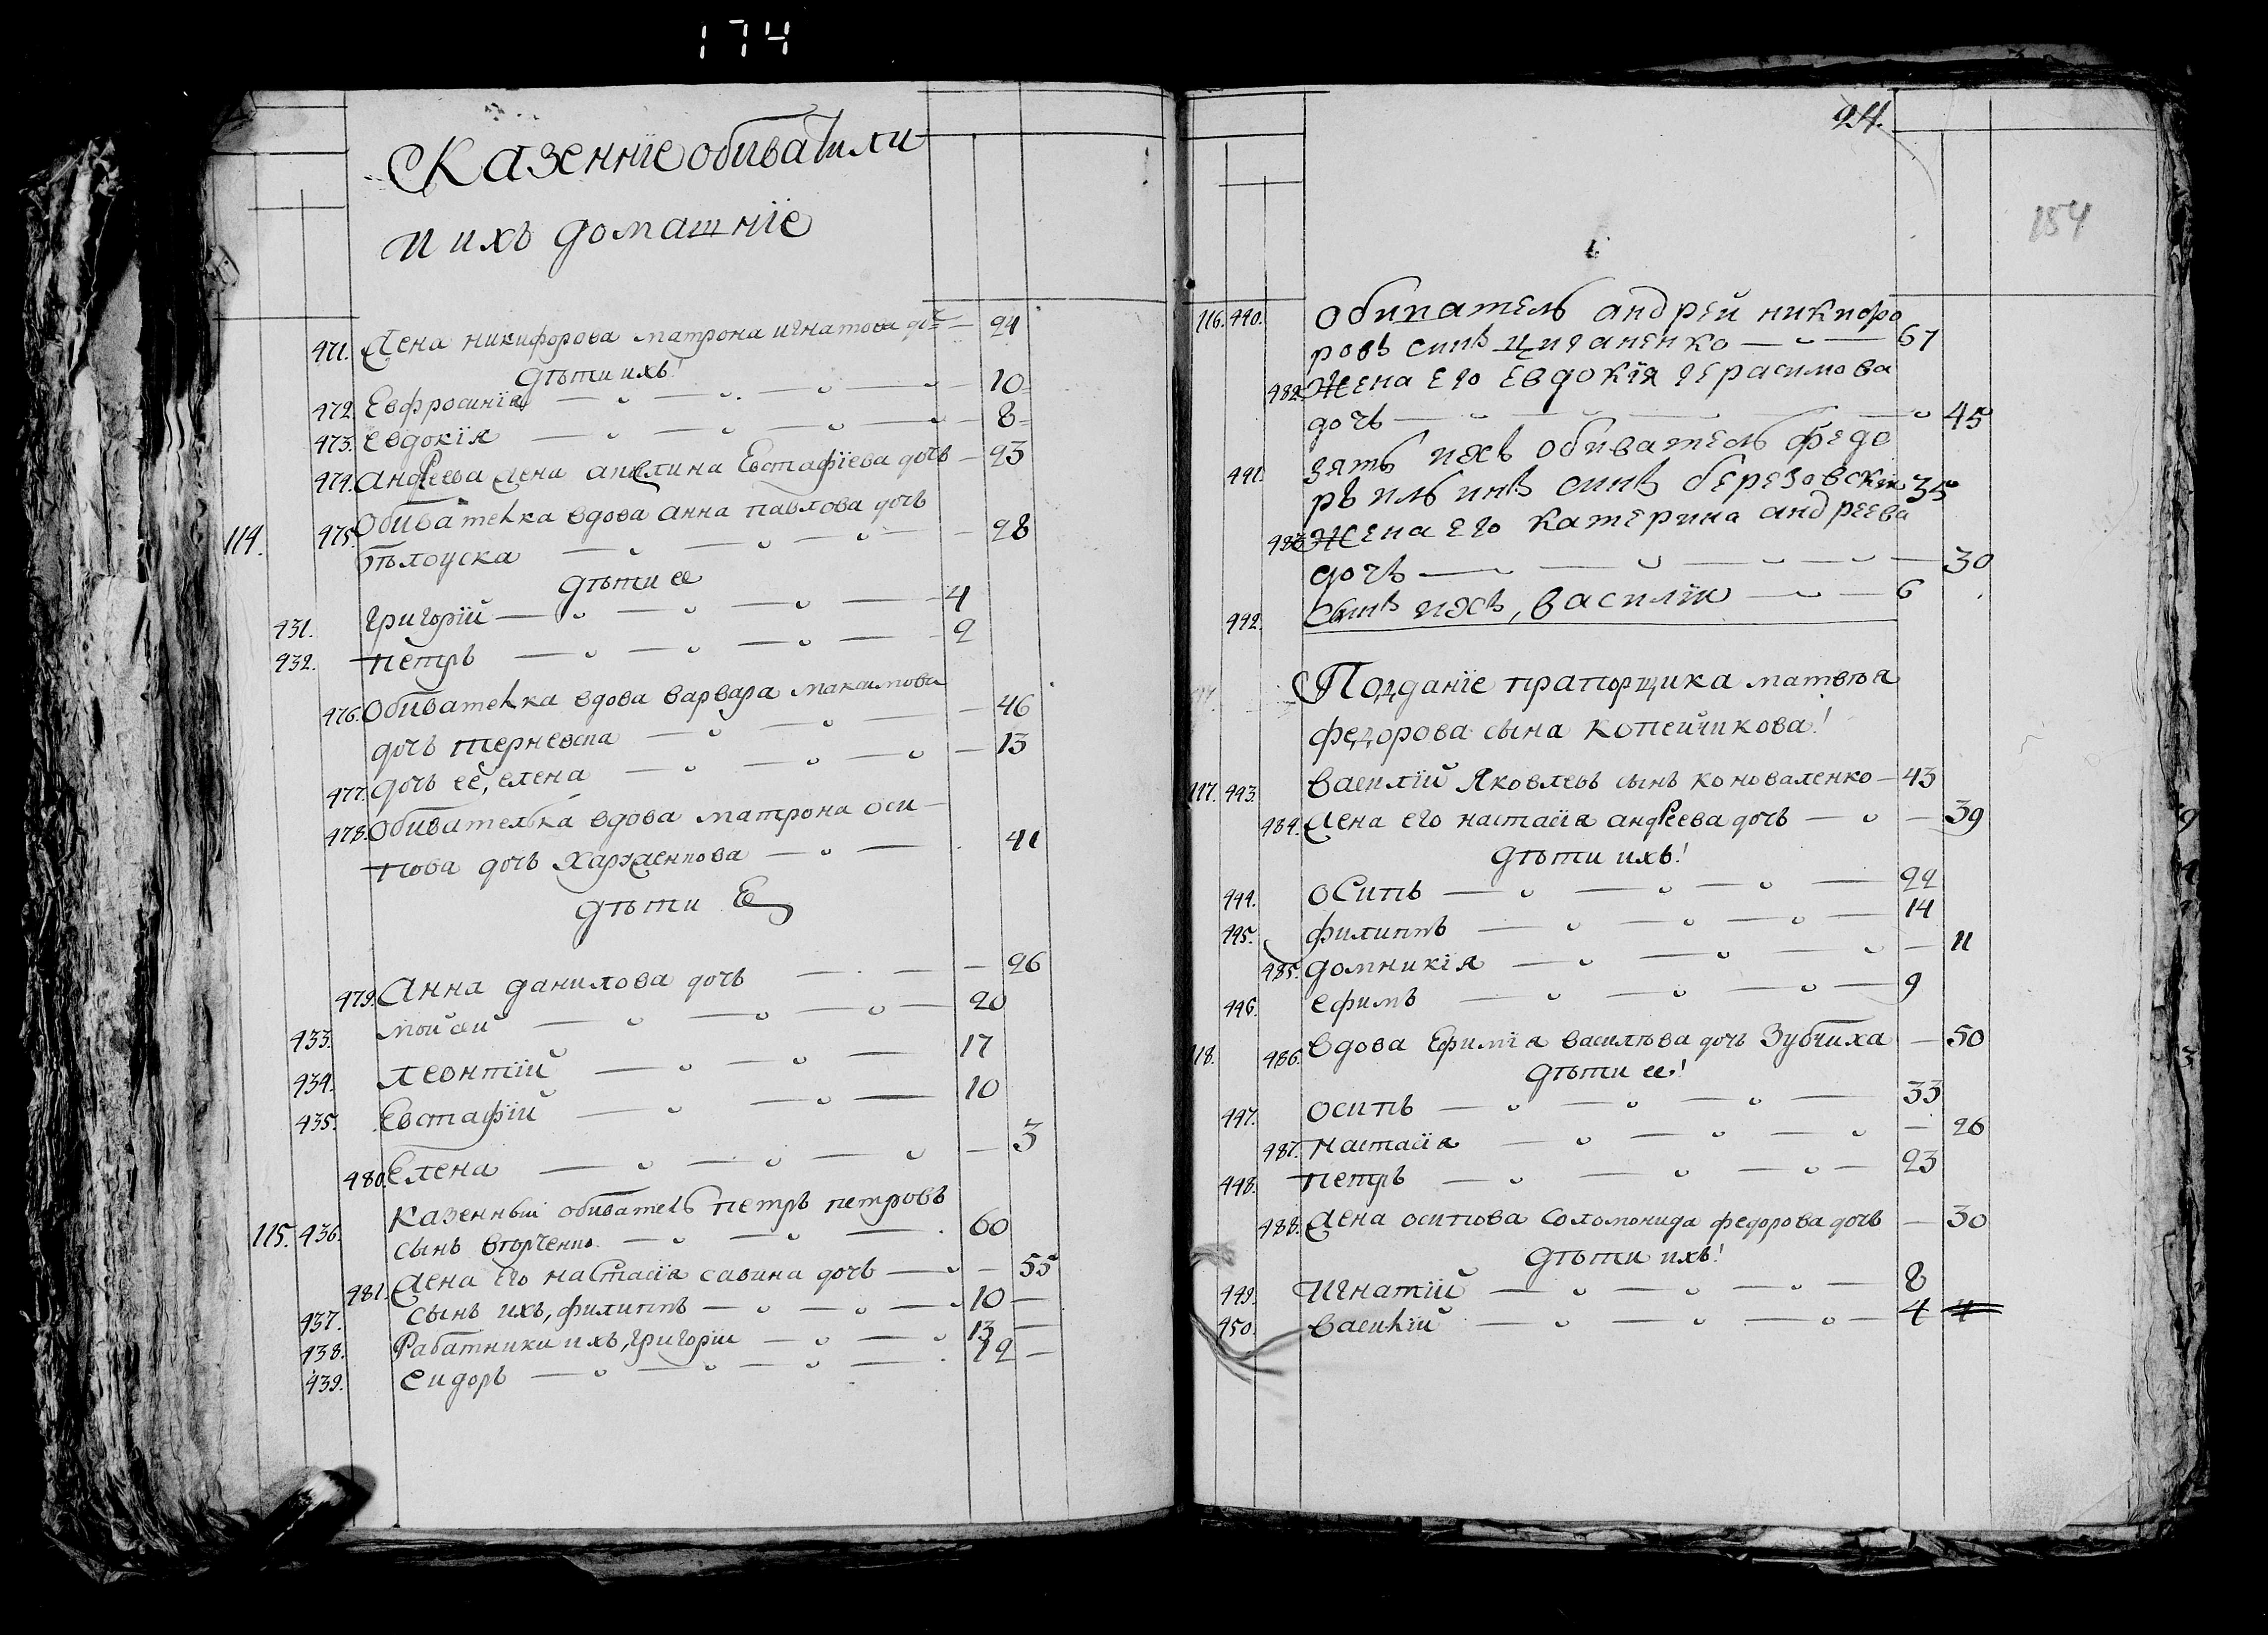 174
Казенніе обиватили
и ихъ домашніе
471. Жена никифорова матрона игнатова доч — 24
Дѣти ихъ!
472. Евфросинія — 10
473. евдокія — 8
474. андреева жена ануслина Евстафіева дочь — 23
114. 475. Обивателка вдова анна павлова дочь
бѣлоуска — 28
Дѣти ее
431. григорій — 4
432. петръ — 2
476. Обивателка вдова варвара максимова
дочь терневспа — 46
477. дочь её, елена — 13
478. Обивателька вдова матрона оси-
пова дочь Харженкова — 41
Дѣти Ее
479. Анна данилова дочь — 26
433. мойсий — 20
434. леонтій — 17
435. Евстафій — 10
480. Елена — 3
115. 436. казенный обиватель петръ петровъ
сынъ — 60
481. Жена его настасія савина дочь — 55
437. сынъ ихъ, филиппъ — 10 —
438. Работники ихъ, григорій — 13 —
439. сидоръ — 12 —
24.
154
116. 440. обиватель андрей никифо
ровъ синъ циганенко — 67
482. Жена его Евдокія герасимова
дочь — 45
441. зять ихъ обиватель федо
ръ ильинъ синъ березовскій 35
483. Жена его катерина андреева
дочь — 30
442. Синъ ихъ, василій — 6
Подданіе прапорщика матвѣя
федорова сына копейчикова!
117. 443. василій Яковлевъ сынъ коноваленко — 43
484. Жена его настасія андреева дочь — 39
Дѣти ихъ!
444. осипъ — 22
445. филиппъ — 14
485. домникія — 11
446. ефимъ — 9
118. 486. вдова Ефимія василѣва дочь Зубчиха — 50
Дѣти ее!
447. осипъ — 33
487. настасія — 26
448. петръ — 23
488. Жена осипова соломонида федорова дочь — 30
Дѣти ихъ!
449. игнатій — 8
450. василій — 4 4